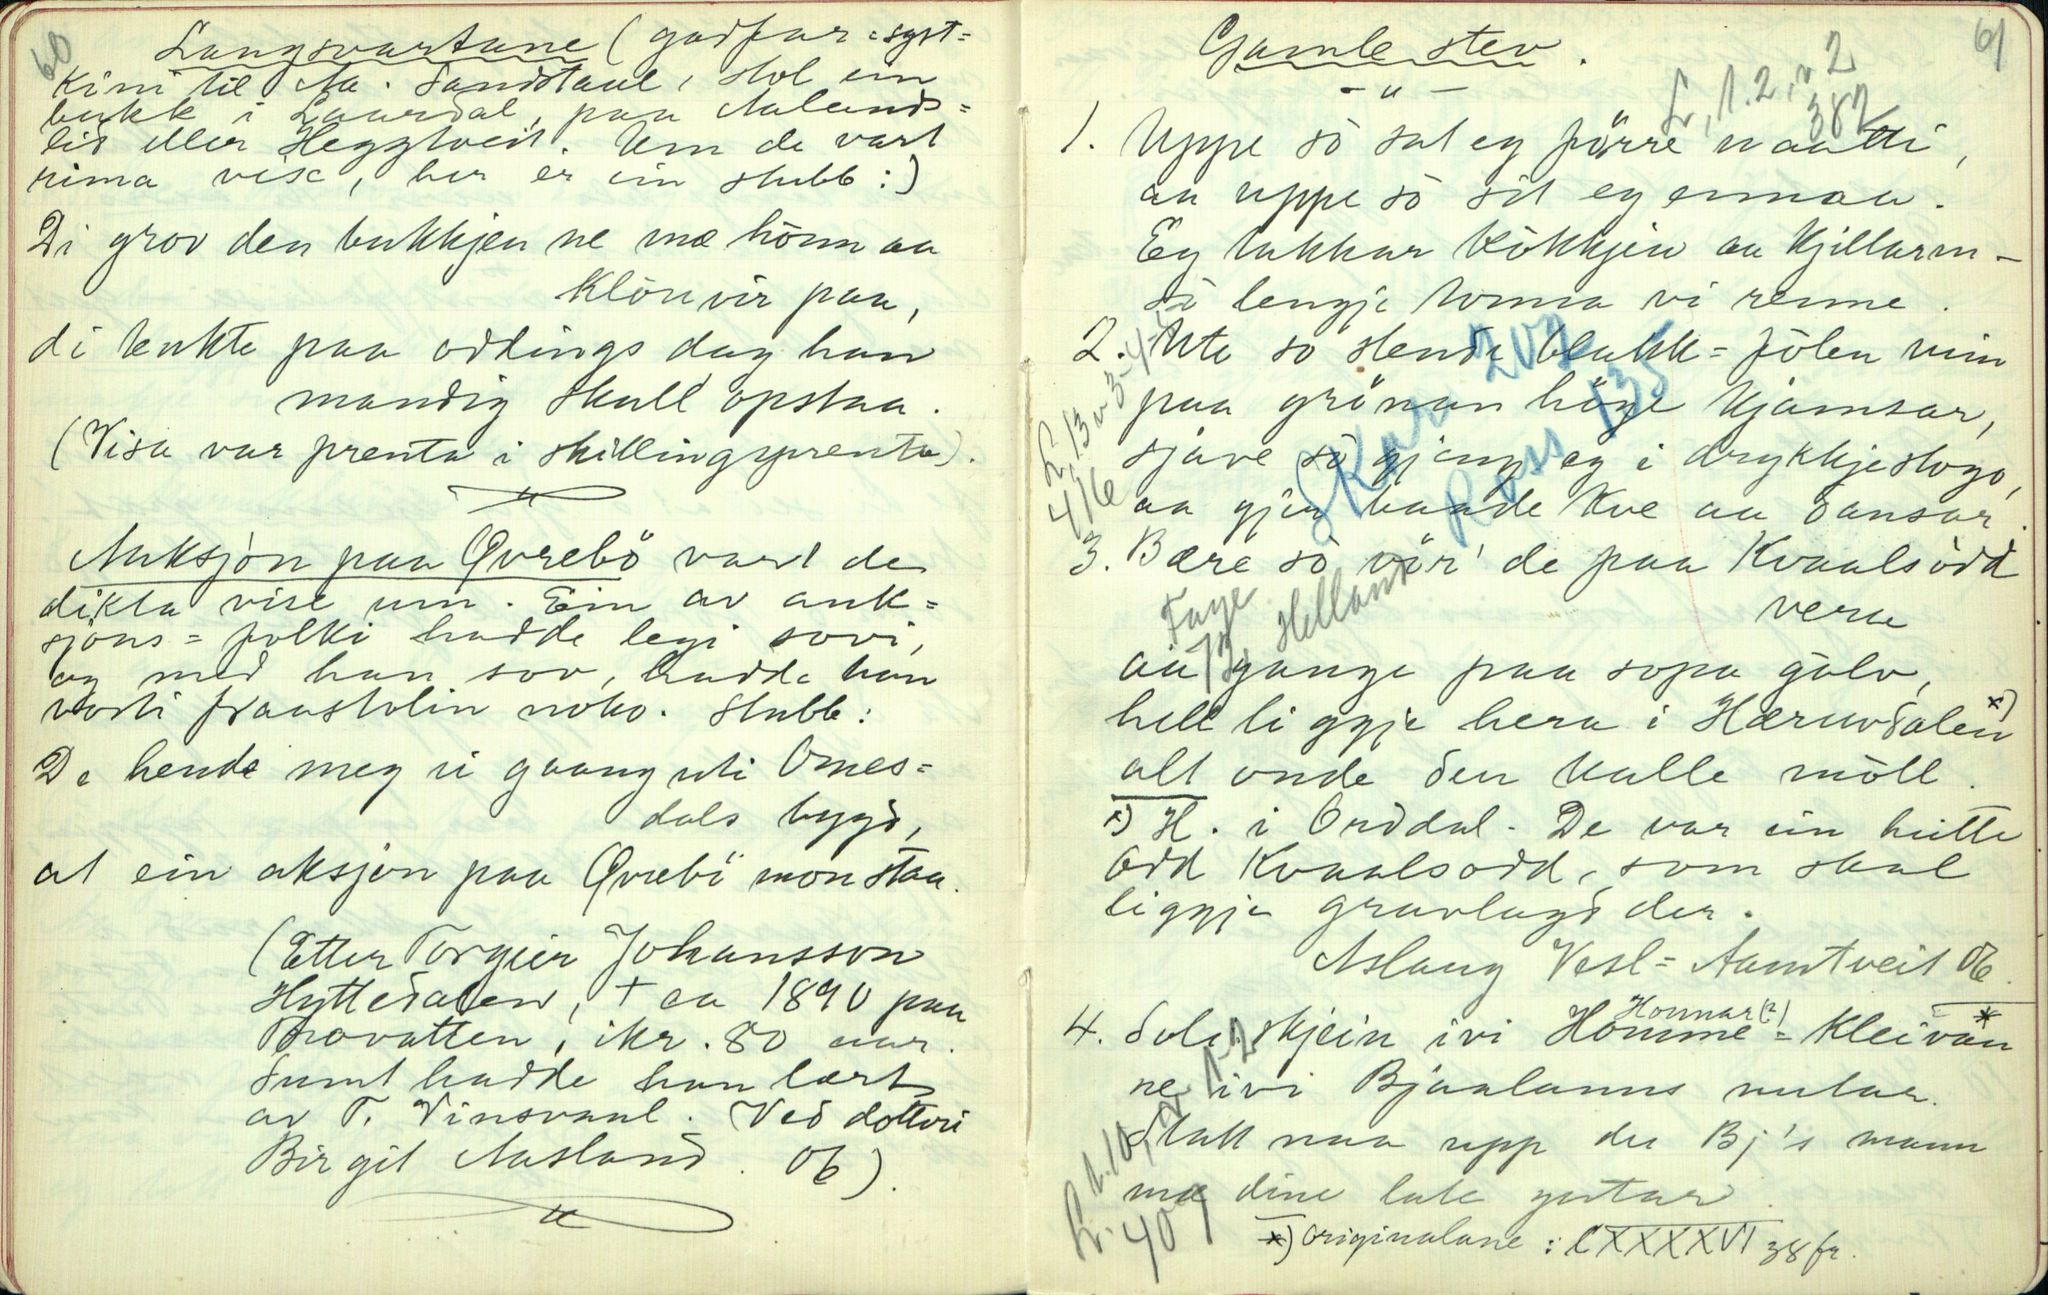 60
Langsvartane (godfar = syst=
kini til Aa. Sandstaul, stol ein
bukk i Laurdal, paa Aalands=
lid eller Heggtveit. Um de vart
rima vise, her er ein stubb:)
Di grov den bukkjen ne mæ hönn aa
klöuvir paa,
di tenkte paa odlings dag han
mandig skull opstaa.
(Visa var prenta i skillingsprenta).
Auksjon paa Qvrebö vart de
dikta vise um. Ein av auk=
sjons=folki hadde legi sovi,
og med han sov, hadde han
vorti fraastolin noko. Stubb:
De hende meg ei gaang uti Omes=
dals bygd,
at ein aksjon paa Qvrebö mon staa.
(Etter Torgeir Johansson
Hyttedalen, + ca 1890 paa
Trovatten, ikr. 80 aar.
Sumt hadde han lært
av T. Vinsvaal. Ved dotteri
Birgit Aasland. 06).
61
Gamle stev.
- " -
L, 1. 2, v 2
382
1. Uppe sò sat eg förre naatti,
aa uppe sò sit eg ennaa.
Eg takkar kòkkjen aa kjillarm -
sò lengje tonna vi renne.
2. Ute so stende blakk=fòlen min
paa grönan höge kjamsar,
sjave sò gjeng eg i drykkjestogo,
aa gjer baade kve aa dansar.
L, 13 v 3-4
416
Skar 202
Ross 135
3. Bære sò vör' de paa Kvaalsòdd
vera
aa gange paa sopa golv,
hell liggje hera i Hæruvdalen x)
alt onde den kalle mòll.
Faye
73, Helland
x) H. i Ordal. De var ein heitte
Odd Kvaalsodd, som skal
liggje gravlagd der.
Aslaug Vesl=Aamtveit 06.
4. Soli skjein ivi Homme=Kleivan *
Hommar(?)
ne ivi Bjaalanns nutar.
Statt naa upp du Bj's mann
mæ dine late gutar.
L. 1.10, v 1-2
407
*) Originalane: CXXXXVI 38 fr.